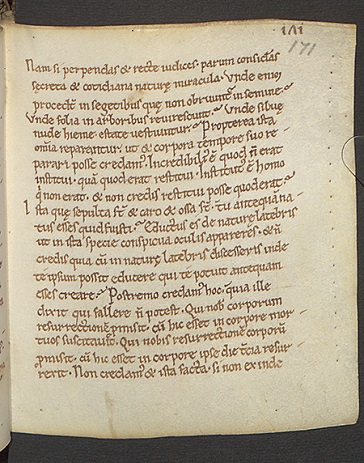 171
171
Nam si perpendas & recte iudices. parum consistas
secreta & cotidiana naturę miracula. Vnde enim
procedit in segetibus quę non obruunt͛ in semine.
Vnde folia in arboribus reuirescunt. Vnde siluę
nudę hieme. estate uestiuntur. Propterea ista
om̅ia reparantur. ut & corpora tempore suo re-
parari posse credam'. Incredibili' ē quod n̄ erat
institui. quā quod erat restitui. Instituit' ē homo
q̇ non erat. & non credis restitui posse quod erat.
Ista quę sepulta st̄ & caro & ossa st̄. tu antequā na-
tus esses quid fuisti. Eductus es de naturę latebris
ut in ista specie conspicua oculis appareres. & n̄
credis quia cū in naturę latebris discesseris inde
te ipsum possit educere qui te potuit antequam
esses creare. Postremo credam' hoc. quia ille
dixit qui fallere n̄ potest. Qui nob̄ corporum
resurrectionē p̄misit. cū hic esset in corpore mor-
tuos suscitauit. Qui nobis resurrectionē corporū
p̄misit. cū hic esset in corpore ipse die t̄cia resur-
rexit. Non credam' & ista facta. si non exinde